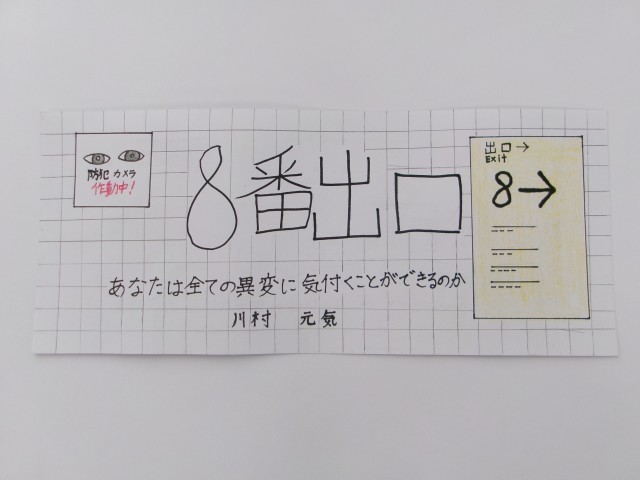 防犯カメラ
作動中!
8番出口
出口→
Exit
8→
あなたは全ての異変に気付くことができるのか
川村 元気